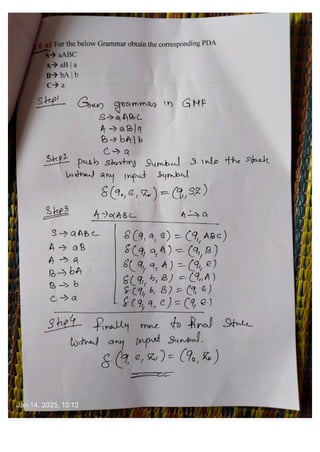 For the below Grammar obtain the corresponding PDA
S→ aABC
A→ aB | a
B→ bA | b
C→ a
Step1 Given grammar in GNF
S→aABC
A→aB|a
B→bA|b
C→a
Step2 push starting Symbol S into the stack
without any input Symbol
δ(q₀, ε, Z₀) = (q, SZ)
Step3 A→αABC A→a
S→aABC δ(q, a, S) = (q, ABC)
A→ aB δ(q, a, A) = (q, B)
A→ a δ(q, a, A) = (q, ε)
B→bA δ(q, b, B) = (q, A)
B→ b δ(q, b, B) = (q, ε)
C→a δ(q, a, C) = (q, ε)
Step4 finally move to final State
Without any input Symbol.
δ(q, ε, Z₀) = (q₀, Z₀)
Jan 14, 2025, 12:12